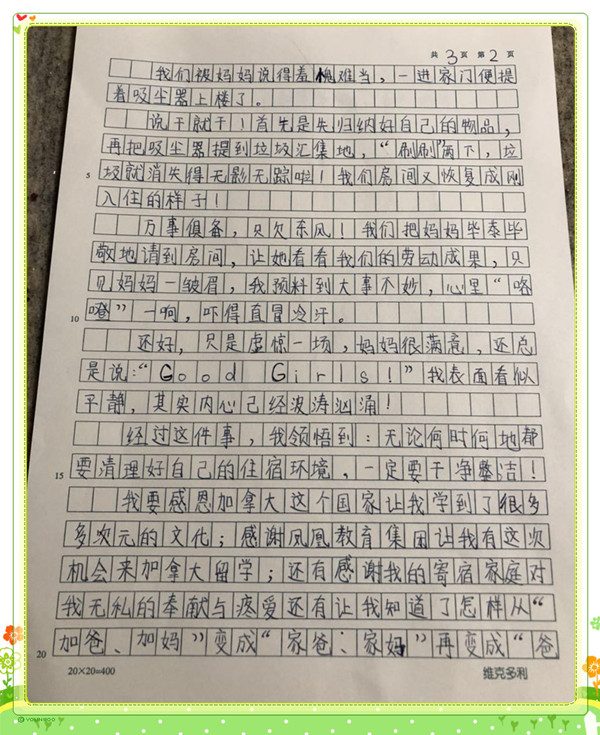 共3页 第2页
我们被妈妈说得羞愧难当，一进家门便提
着吸尘器上楼了。
说干就干！首先是先归纳好自己的物品，
再把吸尘器提到垃圾汇集地，“刷刷”两下，垃
5 圾就消失得无影无踪啦！我们房间又恢复成刚
入住的样子！
万事俱备，只欠东风！我们把妈妈毕恭毕
敬地请到房间，让她看看我们的劳动成果，只
见妈妈一皱眉，我预料到大事不妙，心里“咯
10 噔”一响，吓得直冒冷汗。
还好，只是虚惊一场，妈妈很满意，还总
是说：“Good Girls！”我表面看似
平静，其实内心已经波涛汹涌！
经过这件事，我领悟到：无论何时何地都
15 要清理好自己的住宿环境，一定要干净整洁！
我要感恩加拿大这个国家让我学到了很多
多次元的文化；感谢凤凰教育集团让我有这次
机会来加拿大留学；还有感谢我的寄宿家庭对
我无私的奉献与疼爱还有让我知道了怎样从“
20 加爸、加妈”变成“家爸、家妈”再变成“爸
20×20=400
维克多利